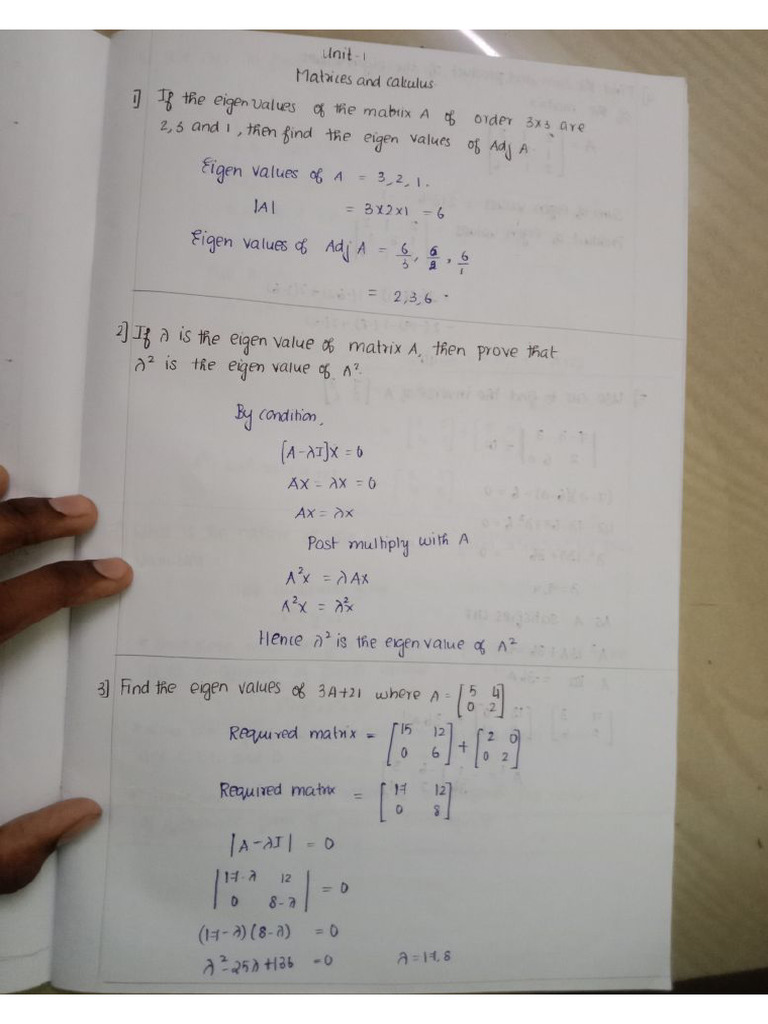 Unit-1
Matrices and calculus
1] If the eigen values of the matrix A of order 3x3 are
2,3 and 1, then find the eigen values of Adj A
Eigen values of A = 3,2,1.
|A| = 3x2x1 = 6
Eigen values of Adj A = 6/3, 6/2, 6/1
= 2,3,6.
2] If λ is the eigen value of matrix A, then prove that
λ² is the eigen value of A².
By condition,
[A-λI]X = 0
AX = λX = 0
AX = λX
Post multiply with A
A²X = λAX
A²X = λ²X
Hence λ² is the eigen value of A²
3] Find the eigen values of 3A+2I where A = [5 4
0 2]
Required matrix = [15 12
0 6] + [2 0
0 2]
Required matrix = [17 12
0 8]
|A-λI| = 0
|17-λ 12
0 8-λ| = 0
(17-λ)(8-λ) = 0
λ²-25λ+136 = 0 λ = 17,8